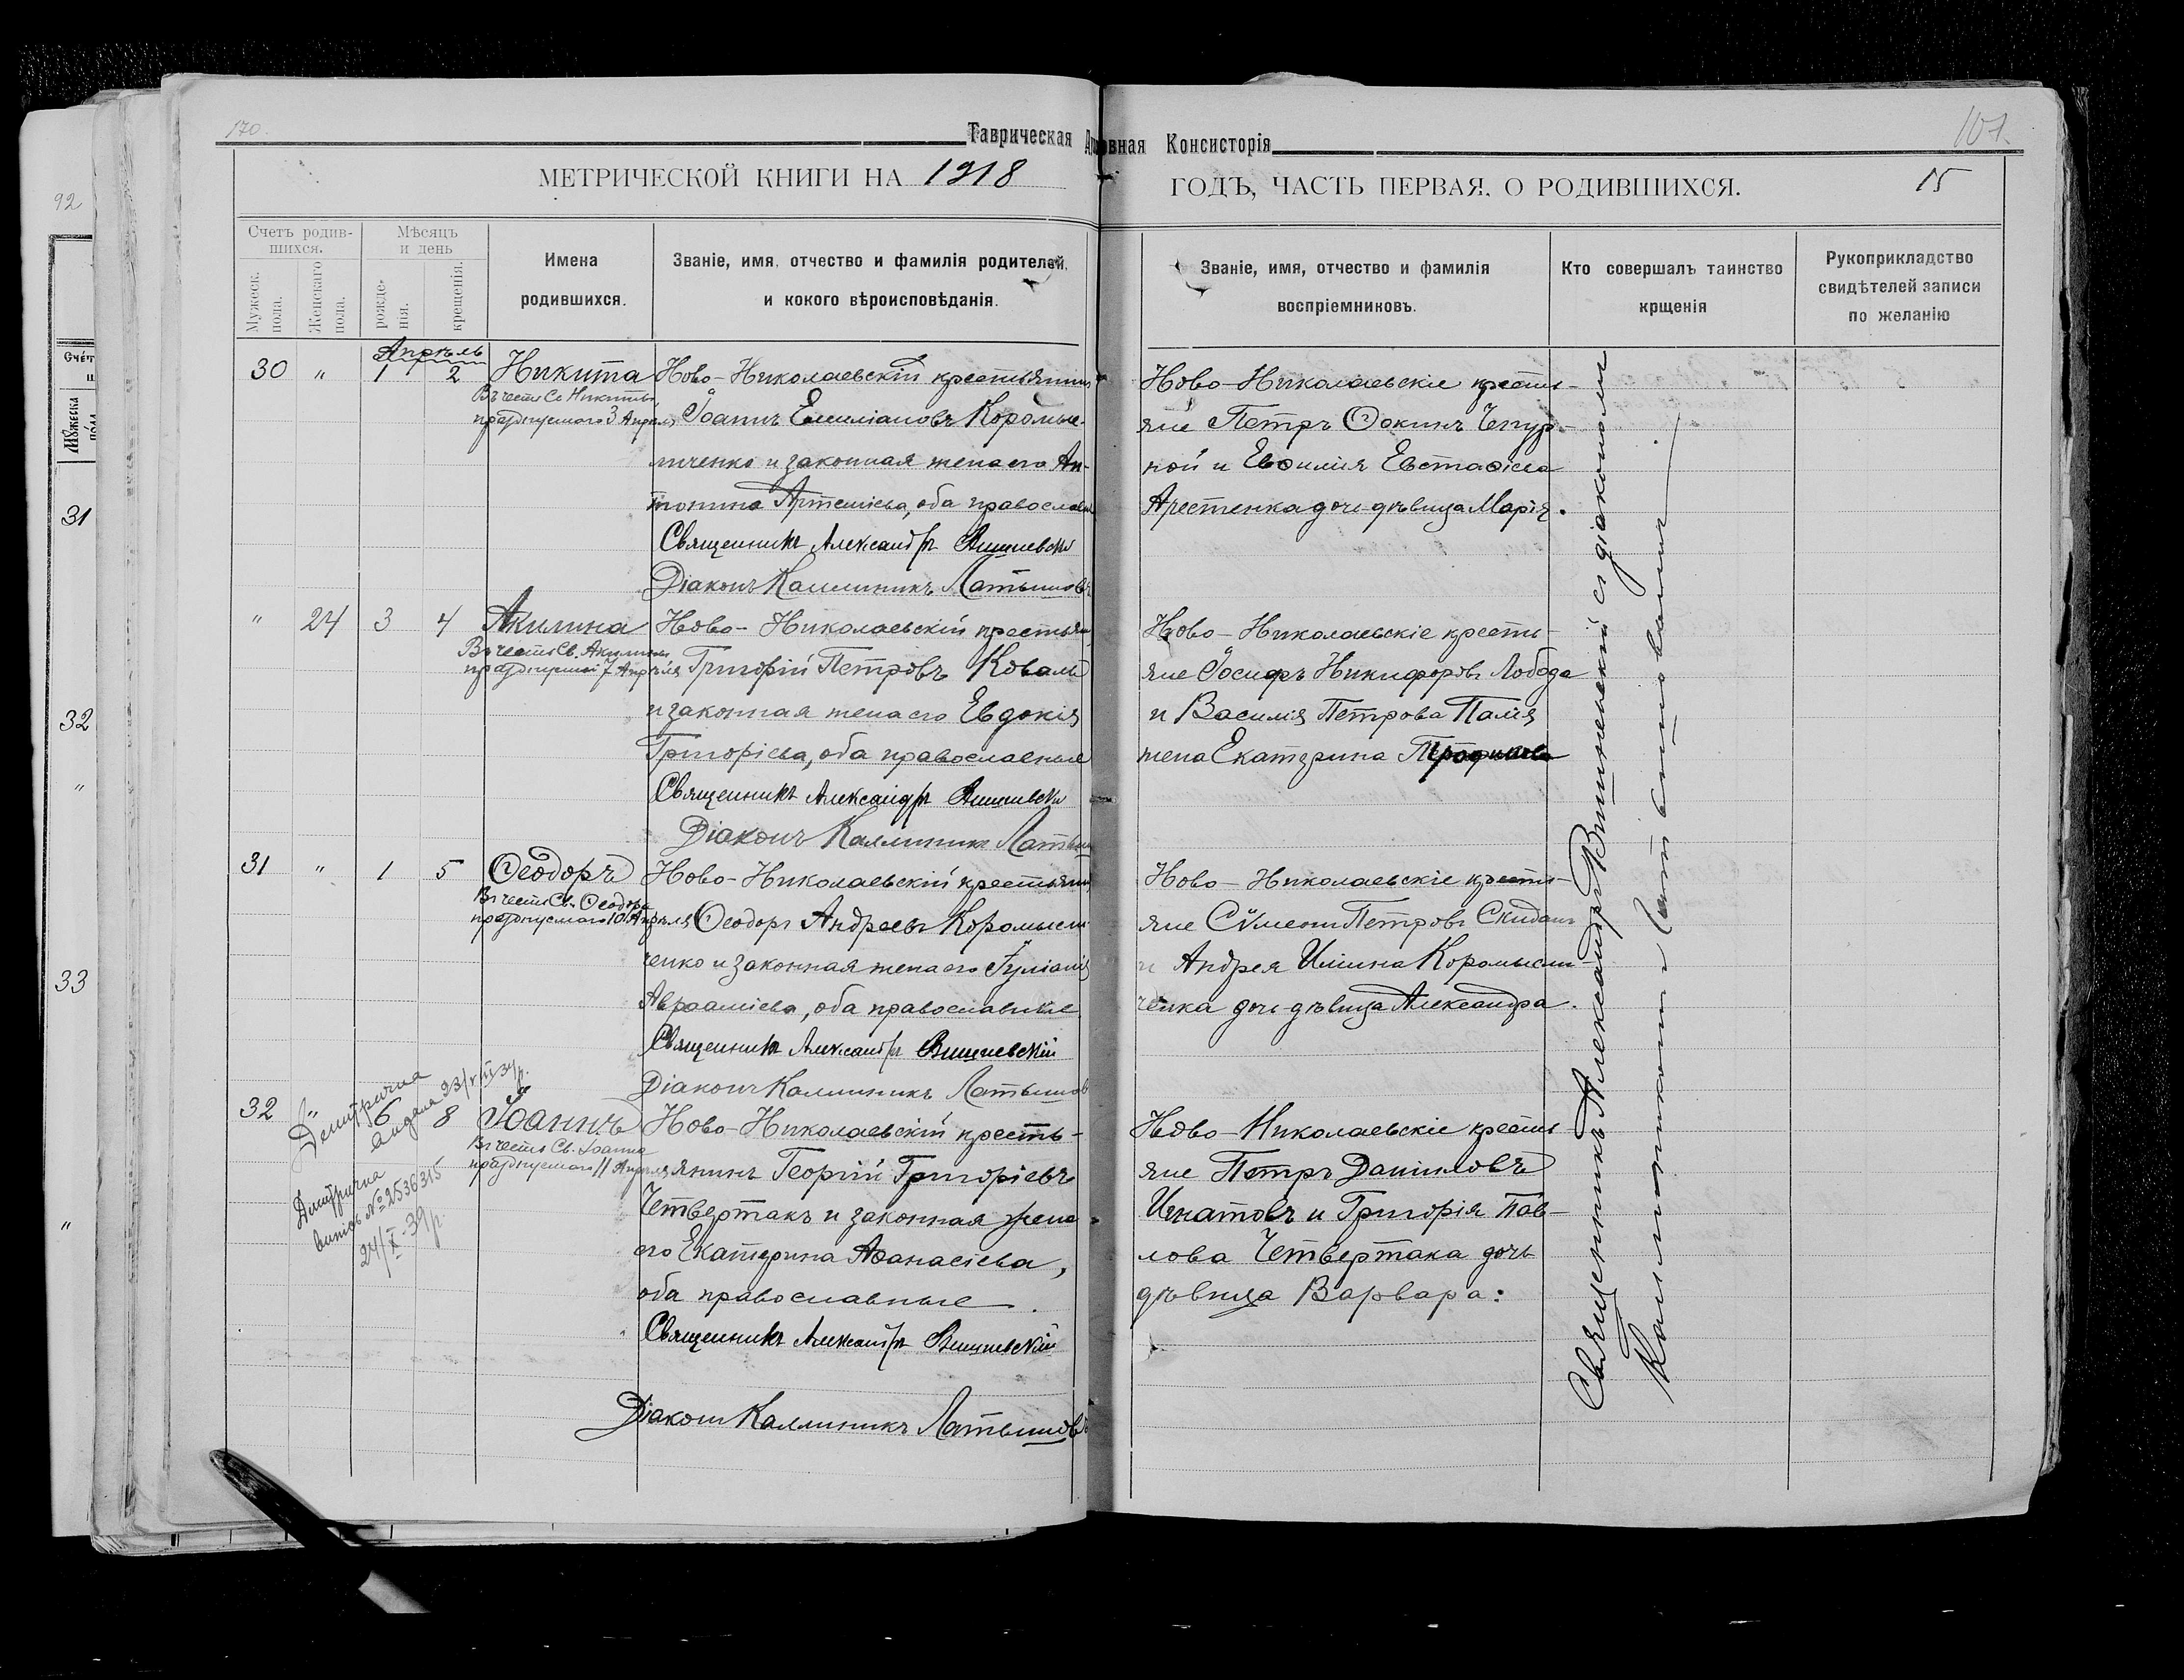 170.
107.
Таврическая Духовная Консисторія
МЕТРИЧЕСКОЙ КНИГИ НА 1918
ГОДЪ, ЧАСТЬ ПЕРВАЯ, О РОДИВШИХСЯ.
15
92
Счетъ родив-
шихся.
Мужеск.
пола.
Женскаго
пола.
Мѣсяцъ
и день
рожде-
нія.
крещенія.
Имена
родившихся.
Званіе, имя, отчество и фамилія родителей,
и кокого вѣроисповѣданія.
Званіе, имя, отчество и фамилія
воспріемниковъ.
Кто совершалъ таинство
крщенія
Рукоприкладство
свидѣтелей записи
по желанію
Апрѣль
30 " 1 2 Никита
Въ честь Св. Никиты,
празднуемаго 3 Апрѣля
Ново-Николаевскій крестьянинъ
Іоаннъ Емиліановъ Коромыс-
личенко и законная жена его Ан-
тонина Артеміева, оба православные
Священникъ Александръ Вишневскій
Діаконъ Каллиникъ Латышовъ
Ново-Николаевскіе кресть-
яне Петръ Ѳокинъ Чепур-
ной и Евѳимія Евстаѳіева
Арестенка дочь-дѣвица Марія.
" 24 3 4 Акилина
Въ честь Св. Акилины
празднуемой 7 Апрѣля
Ново-Николаевскій крестьян
Григорій Петровъ Коваль
и законная жена его Евдокія
Григоріева, оба православные
Священникъ Александръ Вишневскі
Діаконъ Каллиникъ Латыш
Ново-Николаевскіе кресть-
яне Іосифъ Никифоровъ Лобода
и Василія Петрова Палія
жена Екатерина
31 " 1 5 Ѳеодоръ
Въ честь Св. Ѳеодора
празднуемаго 10 Апрѣля
Ново-Николаевскій крестьянин
Ѳеодоръ Андреевъ Коромысли
ченко и законная жена его Іуліанія
Авраамiева, оба православные
Священникъ Александръ Вишневскій
Діаконъ Каллиникъ Латышов
Ново-Николаевскіе кресть-
яне Сѵмеонъ Петровъ Скиданъ
и Андрея Ильина Коромысли-
ченка дочь-дѣвица Александра.
32 " 6 8 Іоаннъ
Въ честь Св. Іоанна
празднуемаго 11 Апрѣля
Ново-Николаевскій кресть-
янинъ Георгій Григоріевъ
Четвертакъ и законная жена
его Екатерина Аѳанасіева,
оба православные.
Священникъ Александръ Вишневскій
Діаконъ Каллиникъ Латышовъ
Ново-Николаевскіе кресть
яне Петръ Даниловъ
Игнатовъ и Григорія Пав-
лова Четвертака дочь
дѣвица Варвара:
Метрична
видана 23/VIII 34 р.
Метрична
витяг № 2536315
24/X-39 р.
Священникъ Александръ Вишневскій съ діакономъ
Каллиникомъ Латышовымъ
Счетъ
Мужеска
пола
31
32
"
33
"